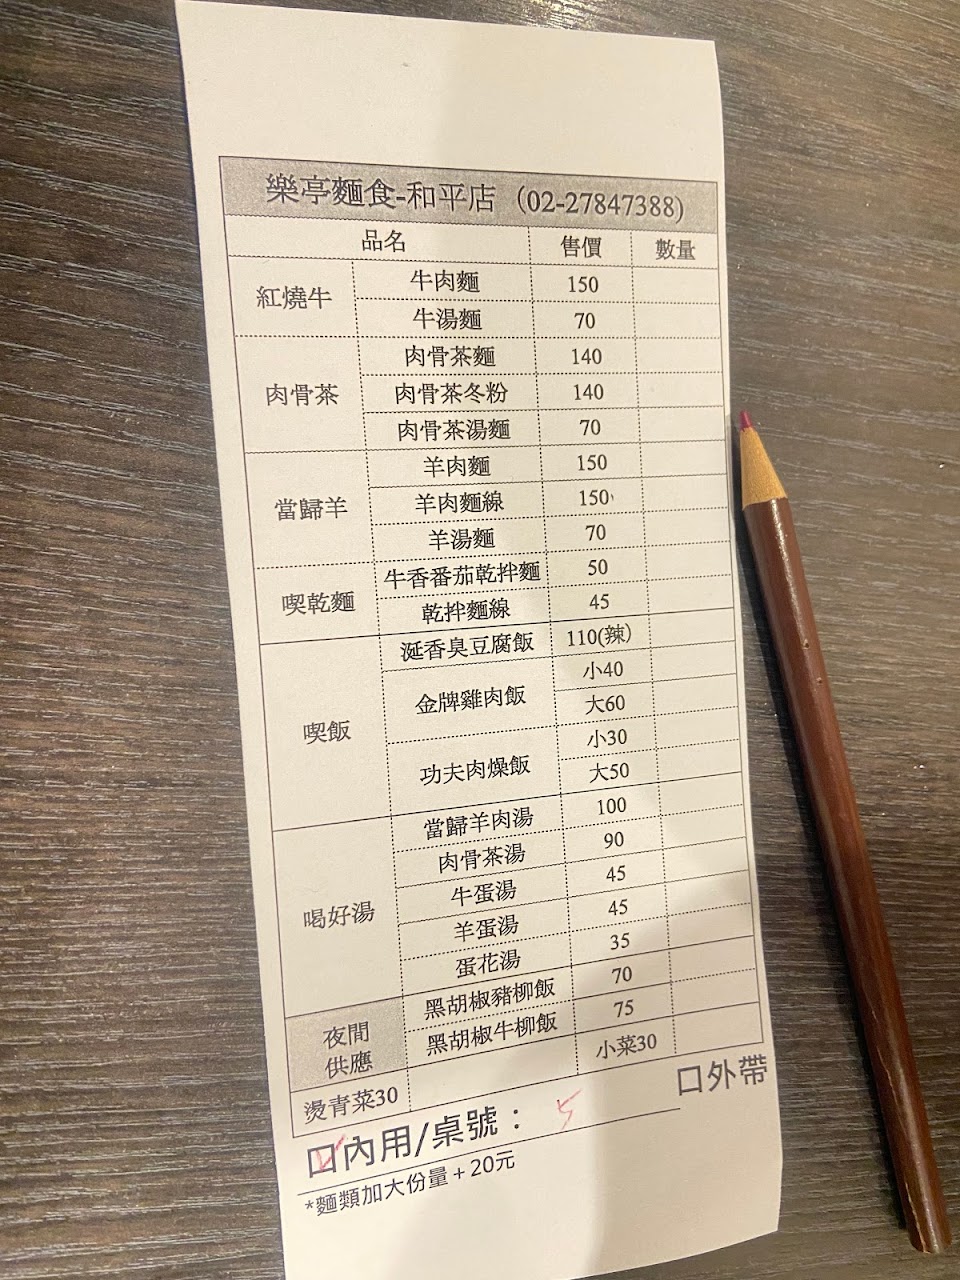 樂亭麵食-和平店（02-27847388)
品名 售價 數量
紅燒牛 牛肉麵 150
牛湯麵 70
肉骨茶 肉骨茶麵 140
肉骨茶冬粉 140
肉骨茶湯麵 70
當歸羊 羊肉麵 150
羊肉麵線 150
羊湯麵 70
喫乾麵 牛香番茄乾拌麵 50
乾拌麵線 45
喫飯 涎香臭豆腐飯 110(辣)
金牌雞肉飯 小40
大60
功夫肉燥飯 小30
大50
喝好湯 當歸羊肉湯 100
肉骨茶湯 90
牛蛋湯 45
羊蛋湯 45
蛋花湯 35
夜間供應 黑胡椒豬柳飯 70
黑胡椒牛柳飯 75
燙青菜30 小菜30
口內用/桌號： 5 口外帶
*麵類加大份量+20元